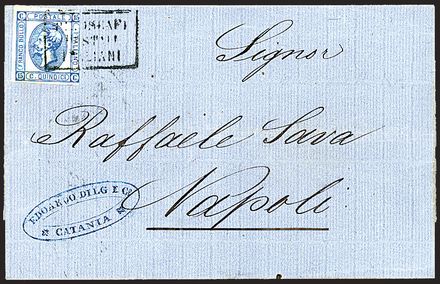 FRANCO BOLLO
POSTALE
ITALIANO
C. QUINDICI
C 15
15 C
Signor
Raffaele Sava
Napoli
EDOARDO DILG E C.
CATANIA